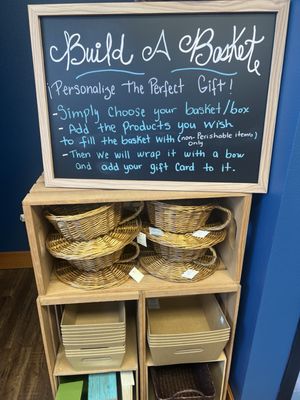 Build A Basket
¡Personalize The Perfect Gift!
- Simply Choose your basket/box
- Add the Products you wish
to fill the basket with (non-Perishable items)
only
- Then we will wrap it with a bow
and add your gift Card to it.